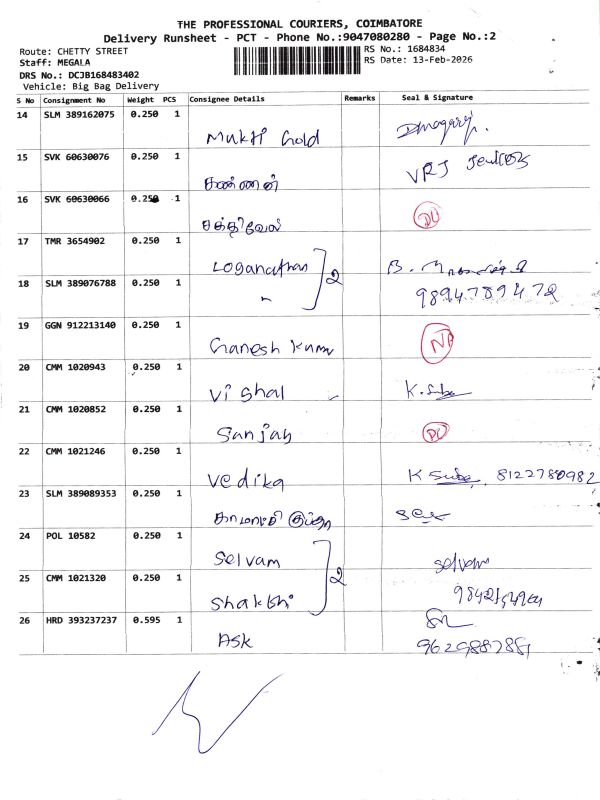 THE PROFESSIONAL COURIERS, COIMBATORE
Delivery Runsheet - PCT - Phone No.:9047080280 - Page No.:2
Route: CHETTY STREET
RS No.: 1684834
Staff: MEGALA
RS Date: 13-Feb-2026
DRS No.: DCJB168483402
Vehicle: Big Bag Delivery
S No Consignment No Weight PCS Consignee Details Remarks Seal & Signature
14 SLM 389162075 0.250 1
Mukti Gold
15 SVK 60630076 0.250 1
கண்ணன் VRJ
16 SVK 60630066 0.250 1
சக்திவேல் DL
17 TMR 3654902 0.250 1
Loganathan 2 B.
18 SLM 389076788 0.250 1
" 9894789472
19 GGN 912213140 0.250 1
Ganesh Kumar
20 CMM 1020943 0.250 1
Vishal K. Suba
21 CMM 1020852 0.250 1
Sanjay DL
22 CMM 1021246 0.250 1
Vedika K Suba, 8122780982
23 SLM 389089353 0.250 1
காமாட்சி குப்தா
24 POL 10582 0.250 1
Selvam 2 selvam
25 CMM 1021320 0.250 1
Shakthi
26 HRD 393237237 0.595 1
ASK